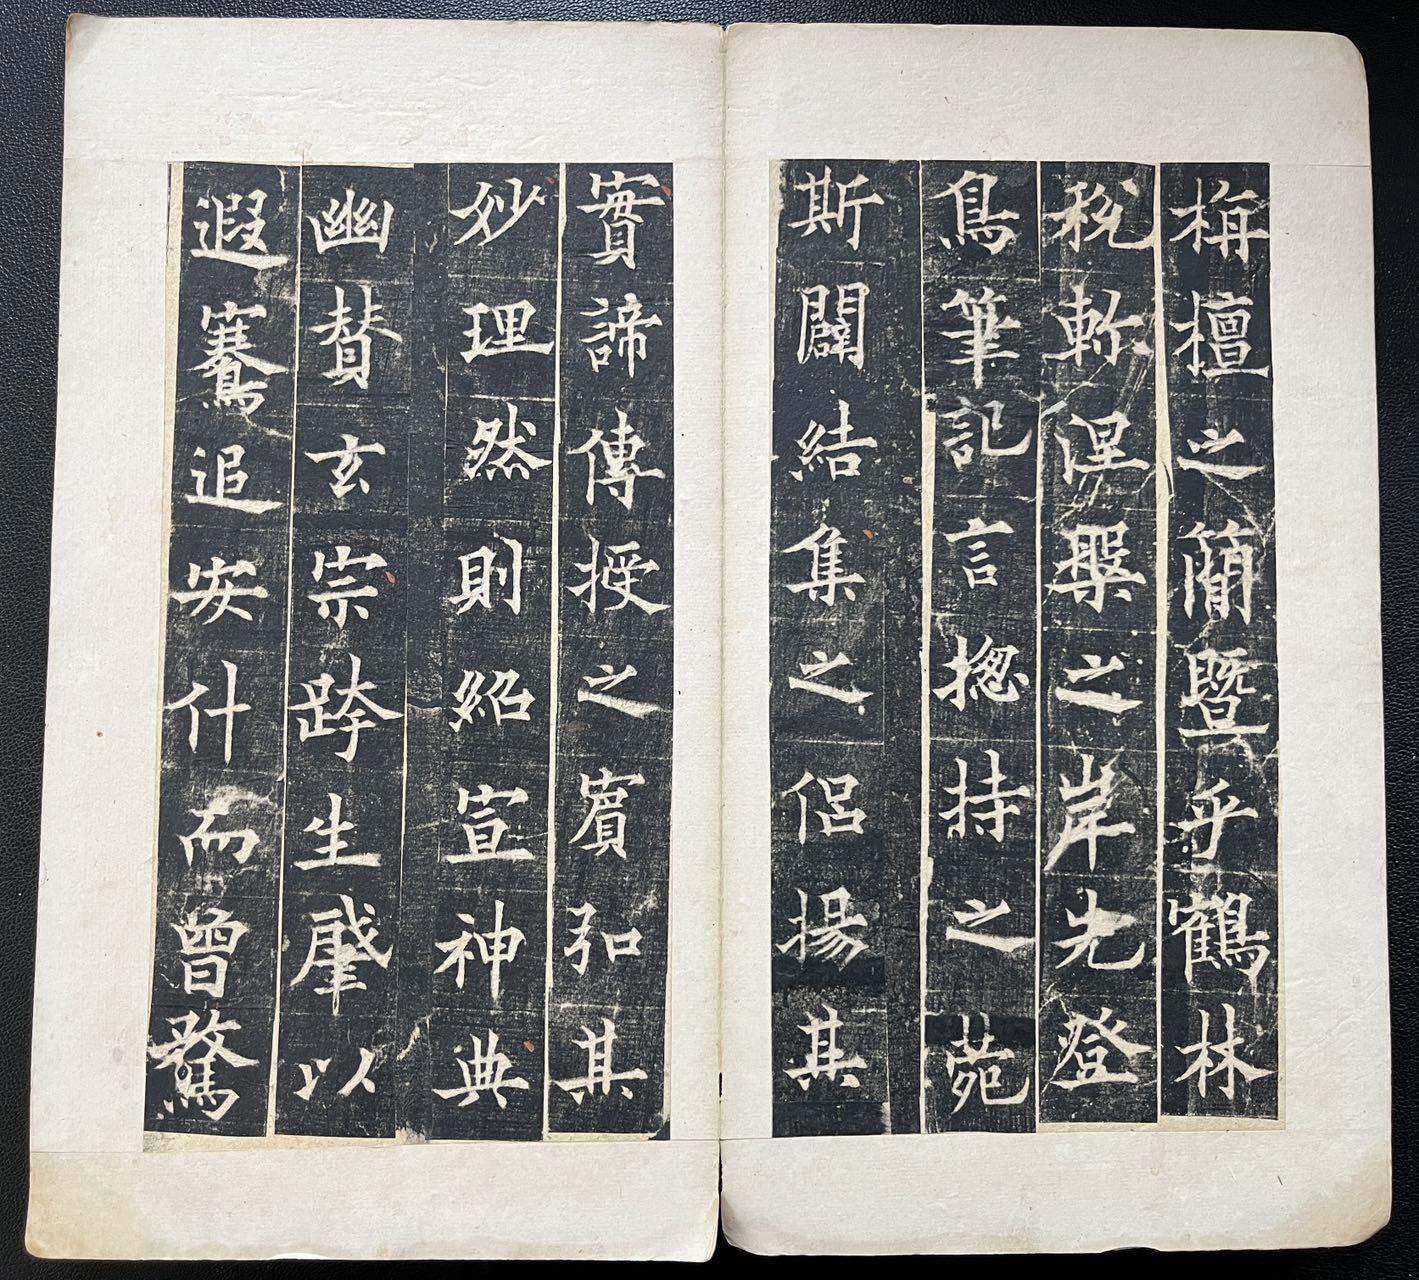 栴檀之簡暨乎鶴林
稅軫涅槃之岸先登
鳥筆記言揔持之菀
斯闢結集之侶揚其
實諦傳授之賔弘其
妙理然則紹宣神典
幽賛玄宗跨生肇以
遐騫追安什而曾騖